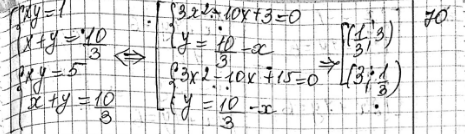 [ { xy = 1
x + y = 10/3
{ xy = 5
x + y = 10/3
⇔
[ { 3x² - 10x + 3 = 0
y = 10/3 - x
{ 3x² - 10x + 15 = 0
y = 10/3 - x
⇒
[ (1/3; 3)
(3; 1/3)